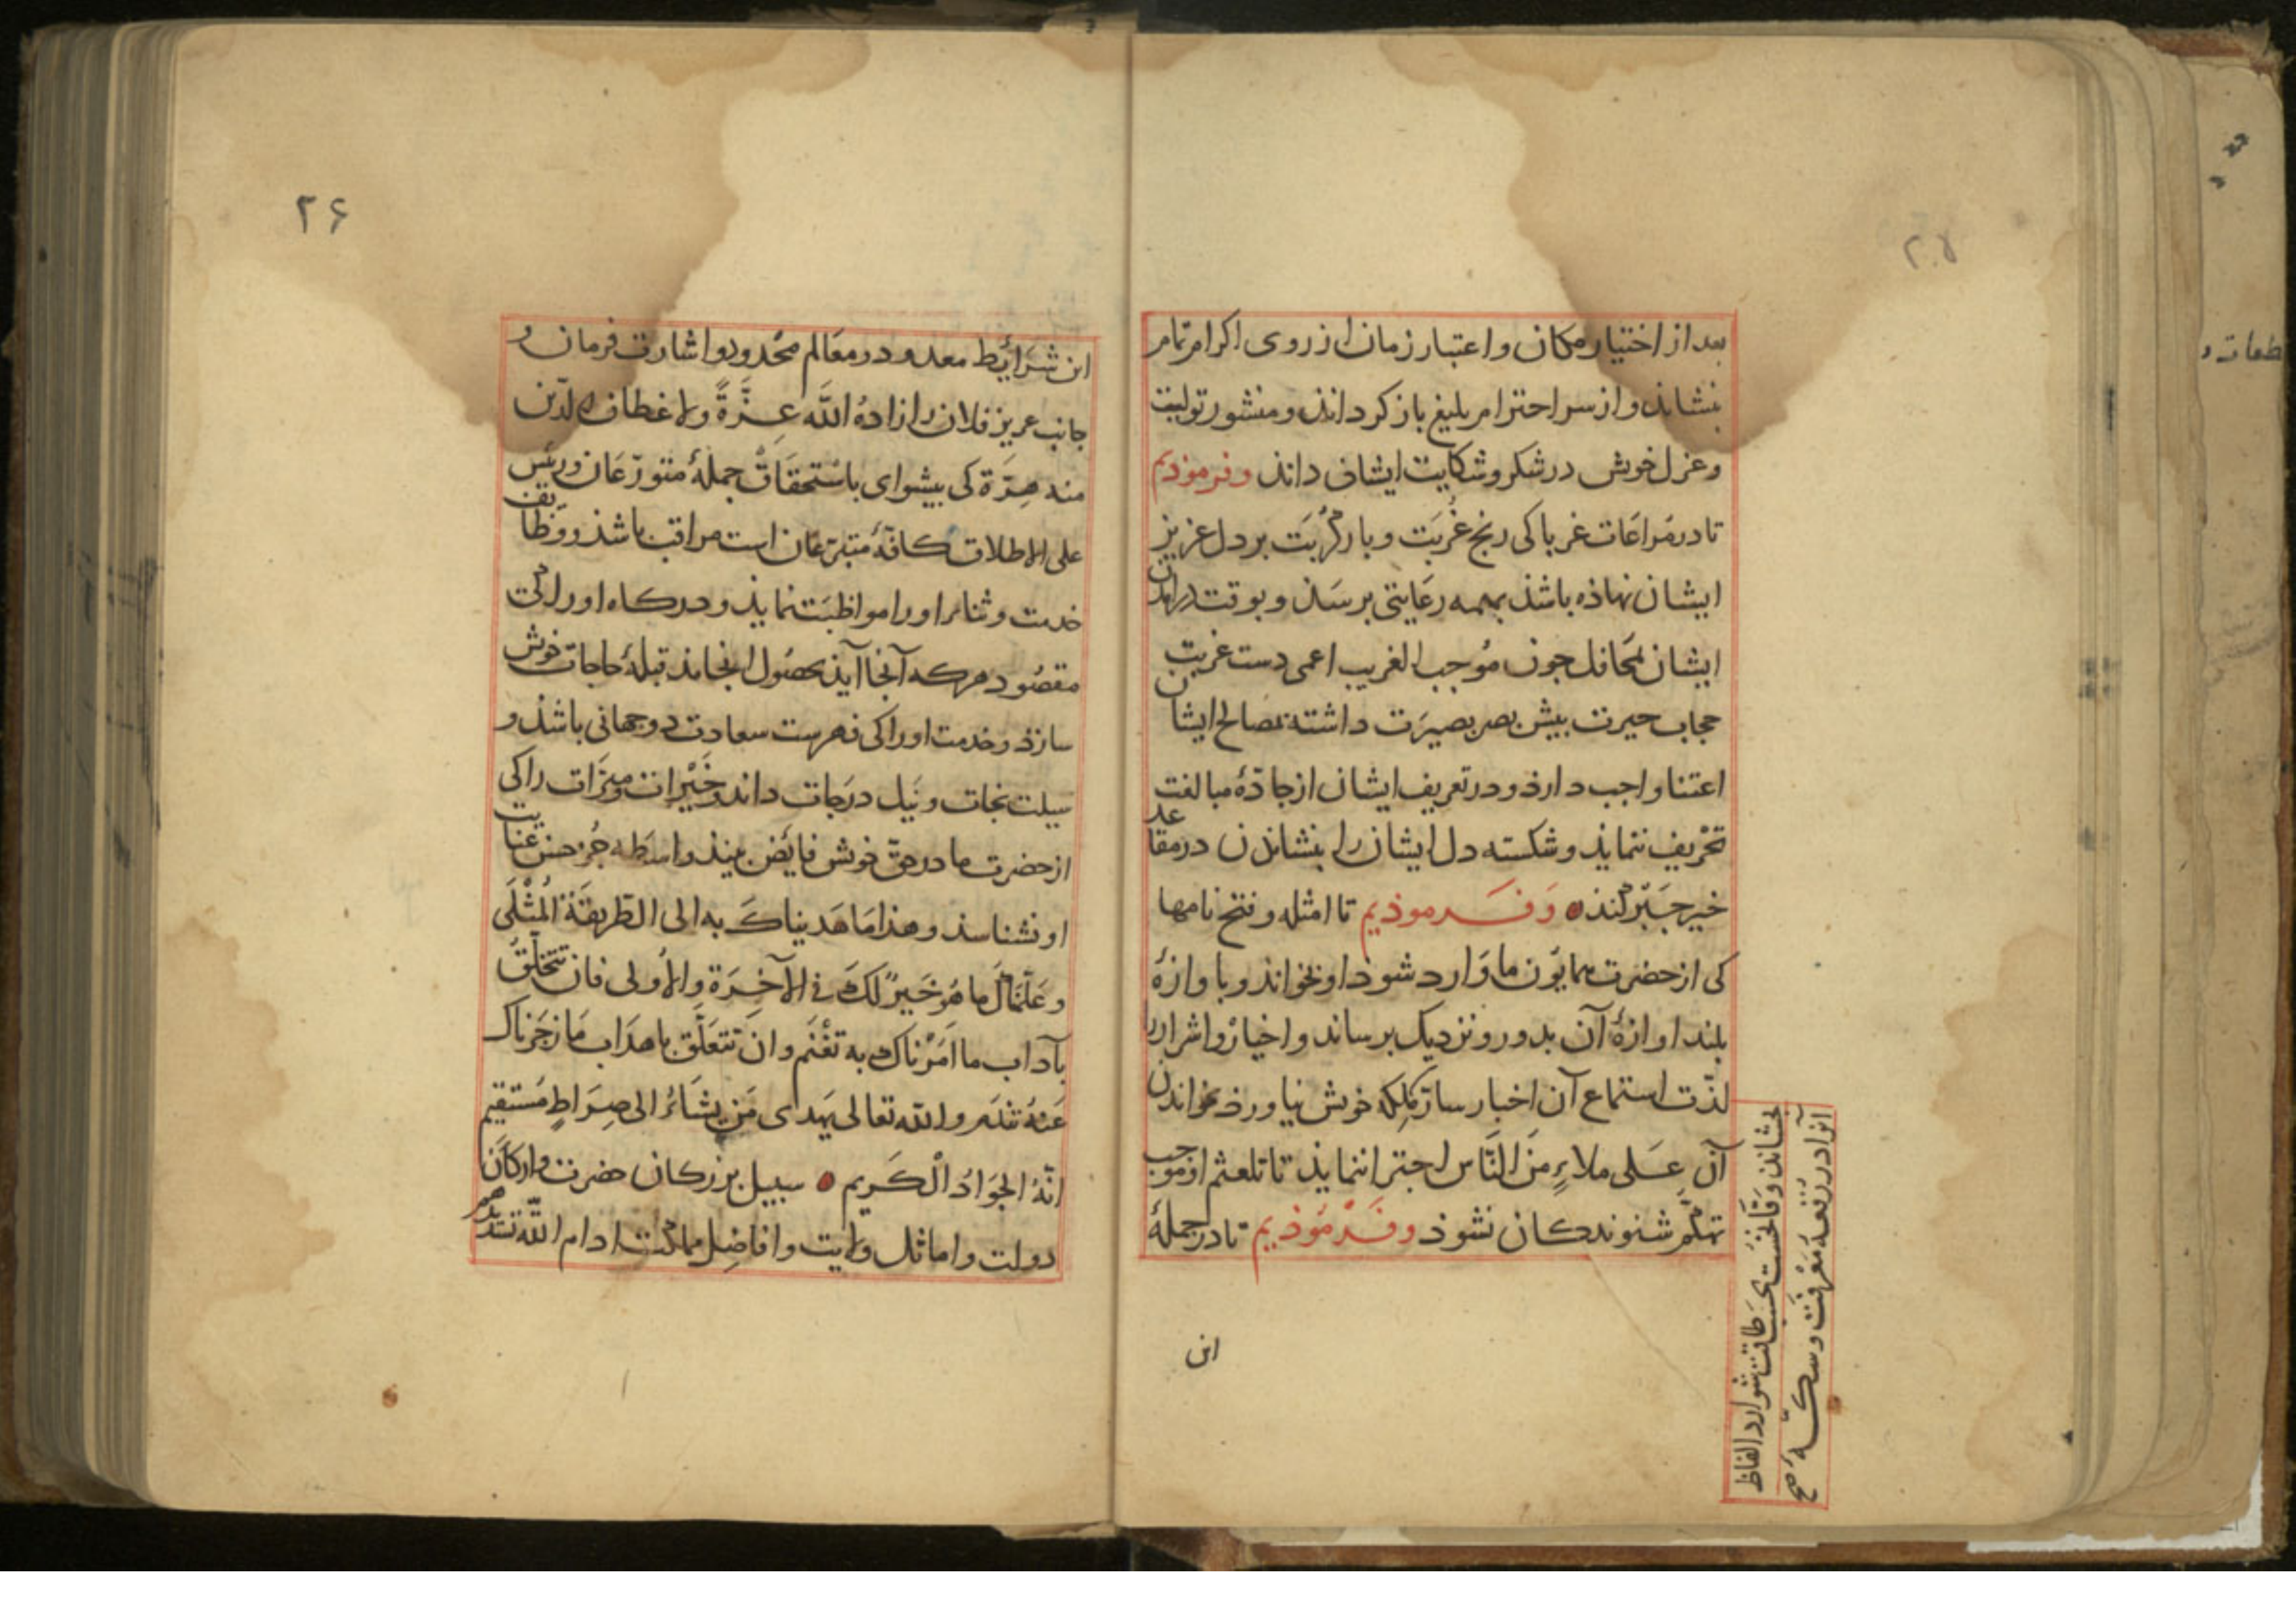 ۲۵
بعد از اختیار مکان و اعتبار زمان از روی اکرام تمام
بنشاند و از سر احترام بلیغ باز کرداند و منشور تولیت
و عزل خویش در شکر و شکایت ایشان داند وفرموذیم
تا در مراعات غربا کی رنج غربت و بار کربت بر دل عزیز
ایشان نهاذه باشذ بهمه رعایتی برسذ و بوقت درامدن
ایشان بمحافل جون موجب الغریب اعمی دست غربت
حجاب حیرت بیش بصر بصیرت داشته بمصالح ایشان
اعتنا واجب دارذ و در تعریف ایشان از جادۀ مبالغت
تحریف ننمایذ و شکسته دل ایشان را بنشاندن در مقاعد
خیر جبر کنذ وفرموذیم تا امثله و فتح نامها
کی از حضرت همایون ما وارد شوذ او بخواند و باوازۀ
بلند اوازۀ آن بدور و نزدیک برساند و اخیار و اشرار را
لذت استماع آن اخبار سار بملکه خویش نیاورد بخواندن
آن علی ملاءٍ من الناس اجترا ننمایذ تا تلعثم او موجب
تهکم شنوندکان نشوذ وفرموذیم تا در جملۀ
بنشاند و فاخت بحسب طاقت شوارد الفاظ
آنرا در ربقه معرفت و سکه صح
این
۲۶
این شرایط معدود در معالم محدود و اشارت فرمان و
جانب عزیز فلان را زاده الله عزةً ولا عطاف الدین
منه هزة کی بیشوای باستحقاق جملۀ متورعان و رئیس
علی الاطلاق کافۀ متبرعان است مراقب باشذ و وظایف
خدمت و ثنا او را مواظبت نمایذ و درکاه او را کی
مقصود هرکه آنجا آیذ بحصول انجامذ قبلۀ حاجات خویش
سازذ و خدمت او را کی فهرست سعادت دوجهانی باشذ و
سیلت نجات و نیل درجات داند و خیرات و مبرات را کی
از حضرت ما در حق خویش فایض بیند واسطه جز حسن عنایت
او نشناسذ و هذا ما هدیناک به الی الطریقة المثلی
و علمناک ما هو خیر لک فی الآخرة والاولی فان تتخلق
بآداب ما امرناک به تغنم وان تتعلق باهداب ما زجرناک
عنه تندم والله تعالی یهدی من یشاء الی صراط مستقیم
انه الجواد الکریم سبیل بزرکان حضرت و ارکان
دولت و اماثل ولایت و افاضل مملکت ادام الله تسدیدهم